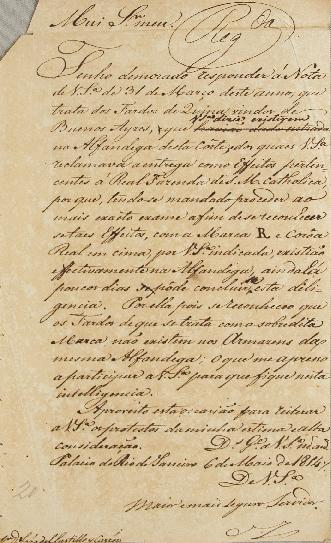 Mui Snr meu.
Reg da
Tenho demorado responder á Nota
de V.Sa de 31 de Março deste anno, que
trata dos Fardos de Quina vindos de
Buenos Ayres, e que
V.Sa dizia existirem
na Alfandega desta Corte, dos quaes V.Sa
reclamava a entrega como Effeitos perten-
centes á Real Fazenda de S. M. Catholica
porque, tendo-se mandado proceder ao
mais exacto exame afim de se reconhecer
se taes Effeitos, com a Marca R e Corôa
Real em cima, por V.Sa indicada, existião
effectivamente na Alfandega, ainda ha
poucos dias se pôde concluir esta dili-
gencia. Por ella pois se reconheceo que
os Fardos de que se trata com a sobredita
Marca não existem nos Armazens da
mesma Alfandega; o que me apresso
a participar a V.Sa para que fique nesta
intelligencia.
Aproveito esta occasião para reiterar
a V.Sa os protestos da minha estima e alta
consideração. Ds. Ge. a V.Sa
Palacio do Rio de Janeiro 6 de Maio de 1814
De V.Sa
Maior e mais seguro Servidor
20